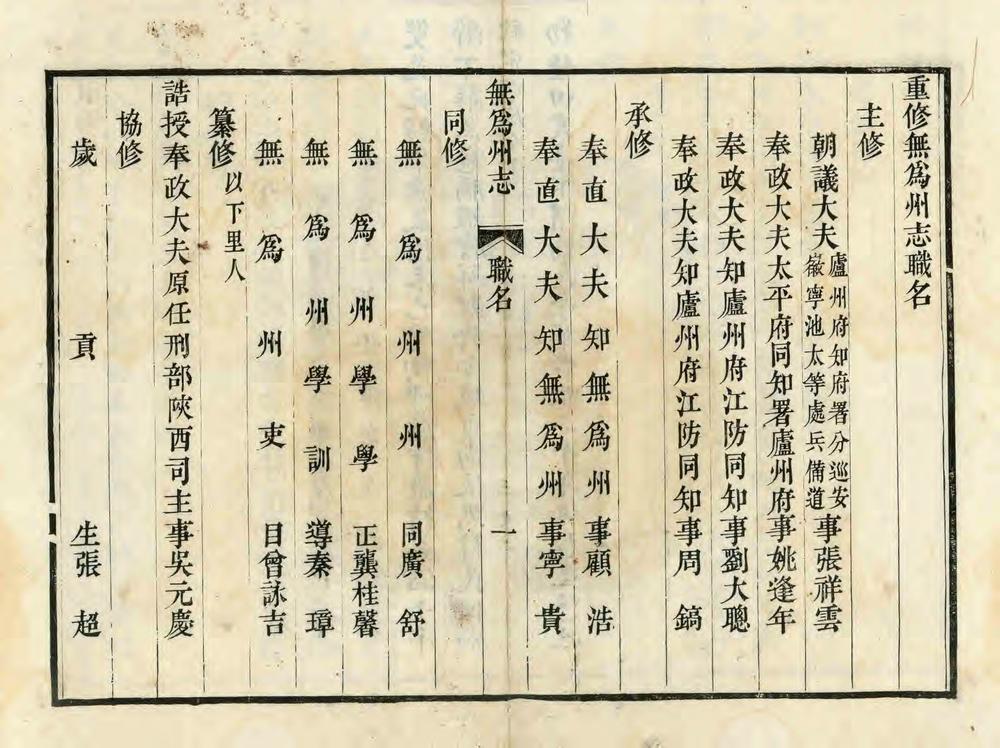 重修無爲州志職名
主修
朝議大夫廬州府知府署分巡安
徽寧池太等處兵備道事張祥雲
奉政大夫太平府同知署廬州府事姚逢年
奉政大夫知廬州府江防同知事劉大聰
奉政大夫知廬州府江防同知事周鎬
承修
奉直大夫知無爲州事顧浩
奉直大夫知無爲州事寧貴
無爲州志 職名 一
同修
無爲州州同廣舒
無爲州學學正龔桂馨
無爲州學訓導秦璋
無爲州吏目曾詠吉
纂修以下里人
誥授奉政大夫原任刑部陝西司主事吳元慶
協修
歲貢生張超